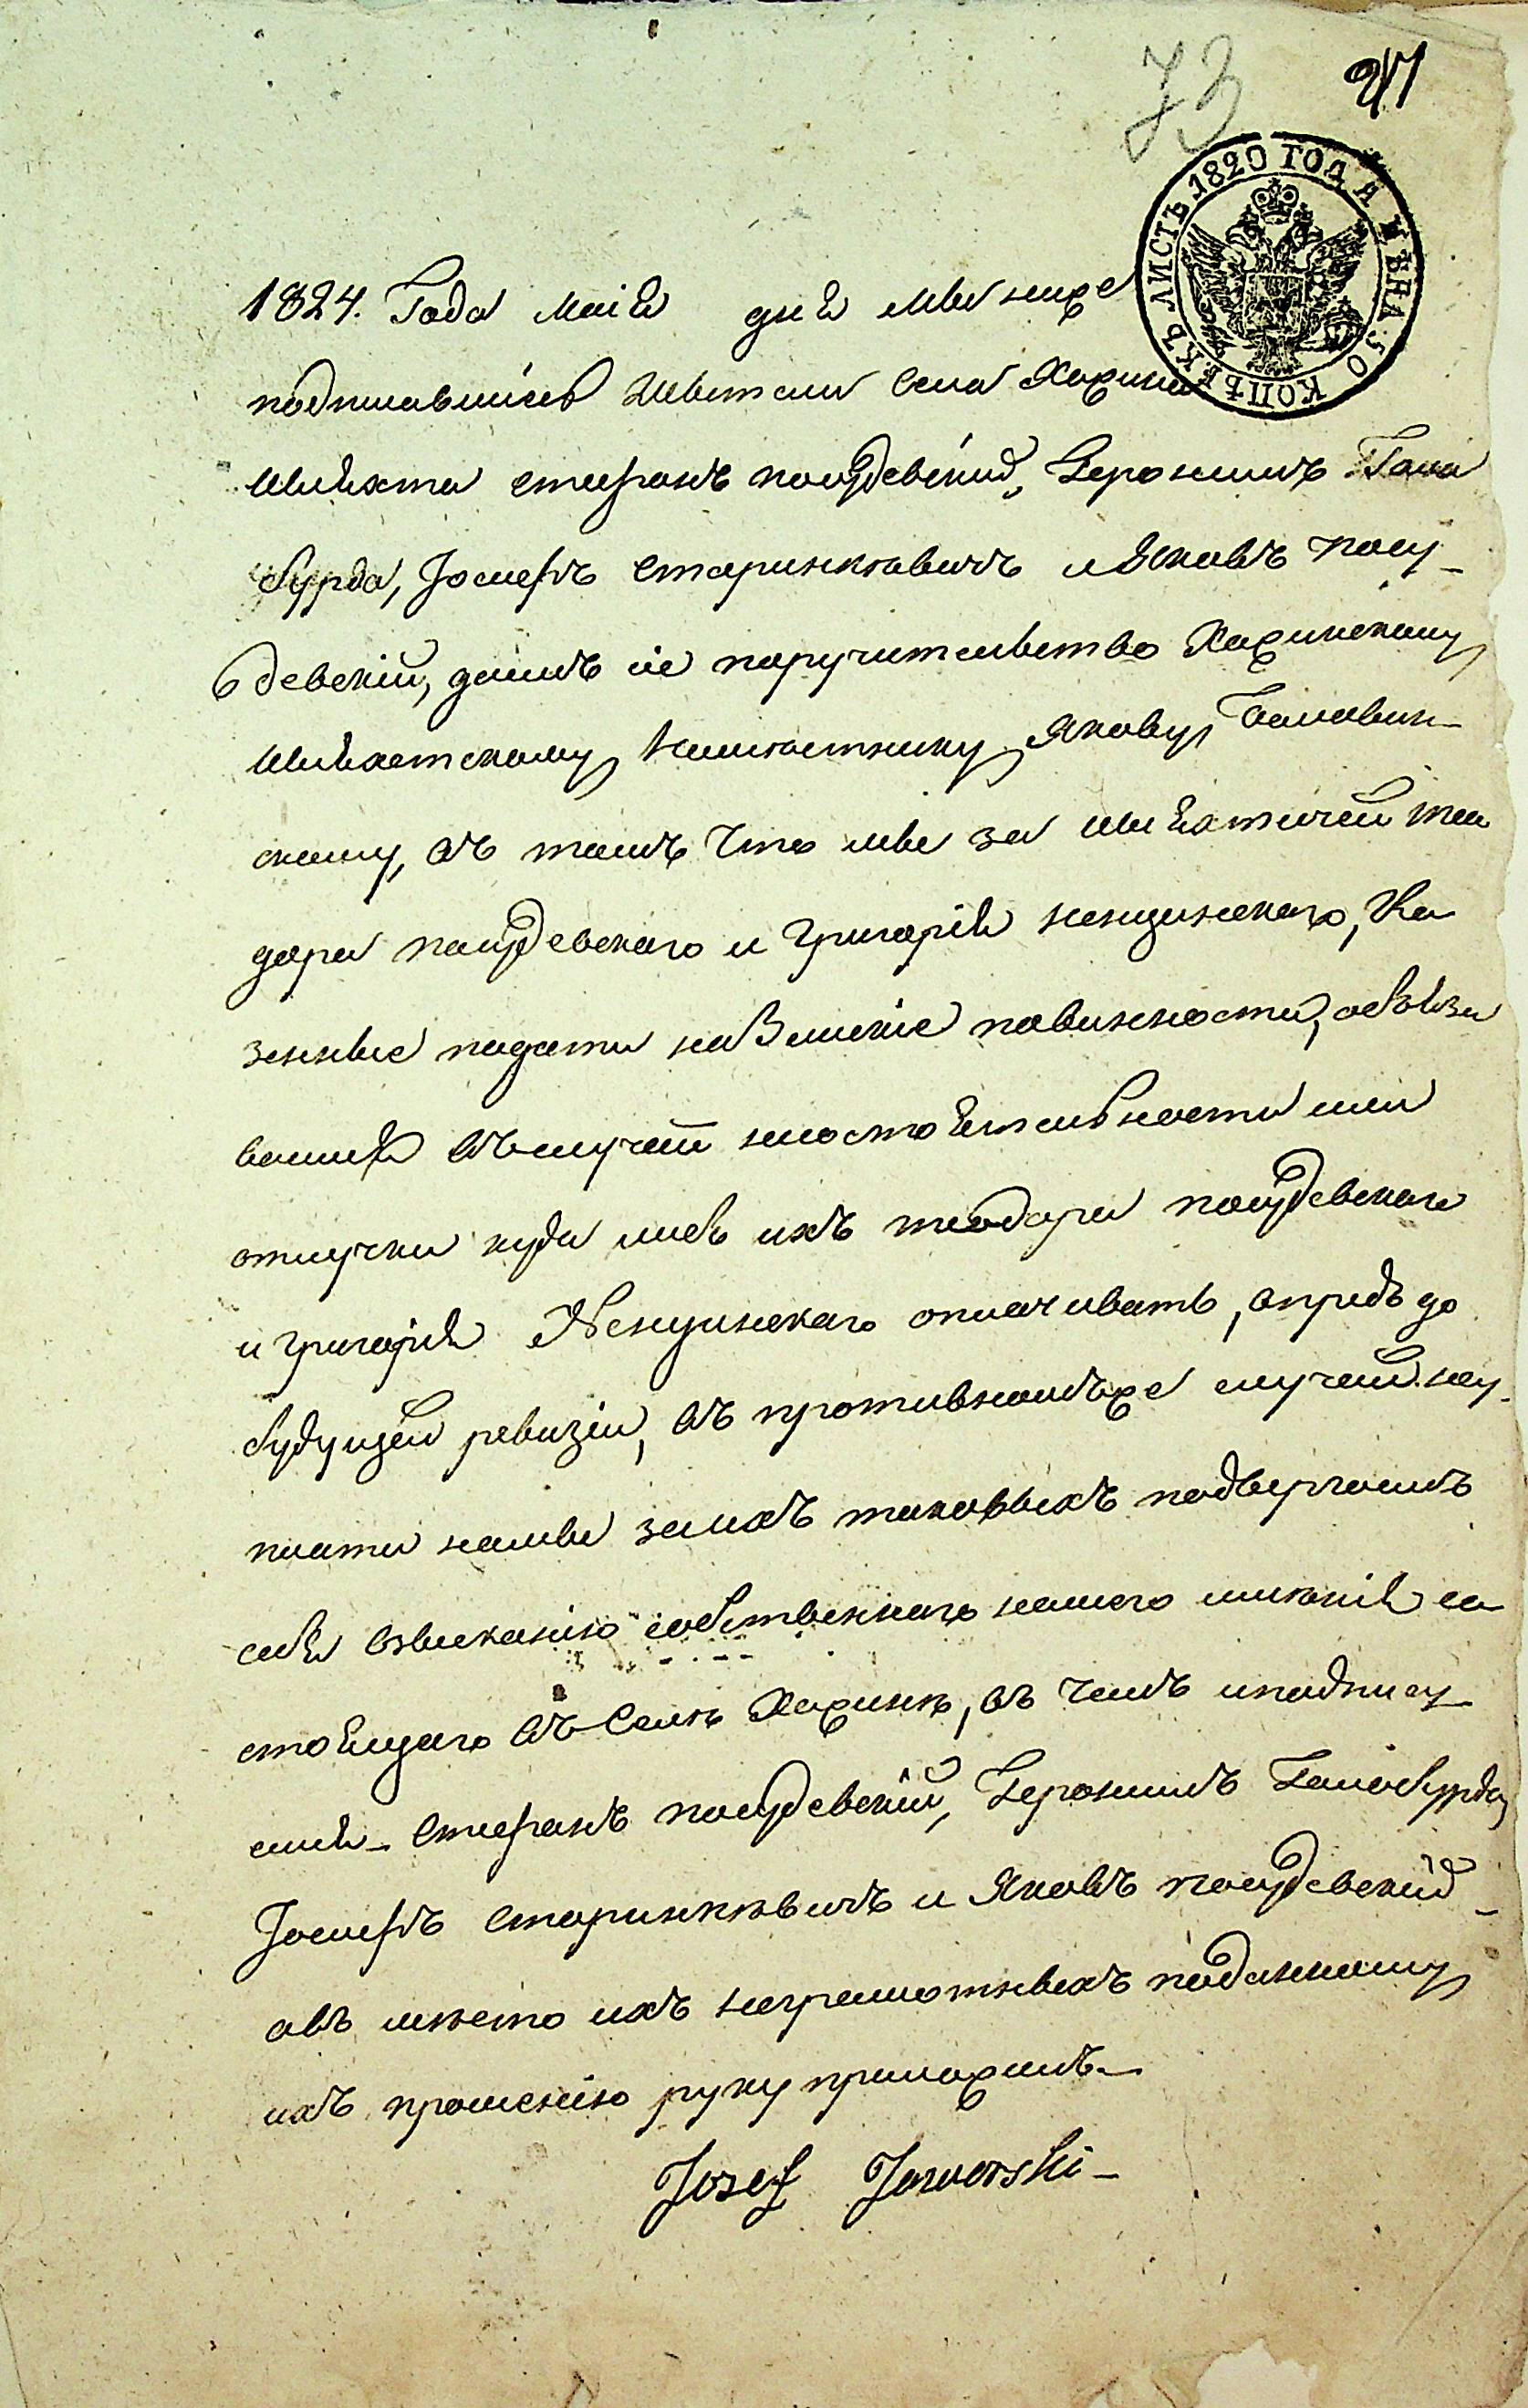 73
27
ЛИСТЪ 1820 ГОДА ЦѢНА 50 КОПѢЕКЪ
1824. Года маія дня мы ниже
подписавшіесь жители села Кажина
шляхта стефанъ поцудевскій, Геронимъ Гала
бурда, Іосифъ старинкѣвичъ и Яковъ поцу_
девскій, далмъ сіе поручительство Кажинскому
шляхетскому намѣстнику Якову
скому, въ томъ что мы за шляхтичей тео
дора поцудевскаго и григорія ненцинскаго, Ка
зенные подати и повинности, обьяза
вшися въ случаи несостоятельности или
отлучки куда либъ ихъ теодора поцудевскаго
и григорія Ненцинскаго оплачивать, впредь до
будущей ревизіи, въ противномъже случаи неу_
плати нами за ихъ таковыхъ подвергаемъ
себя взысканію собственнаго нашего имѣнія со
стоящаго въ селѣ Кажинѣ, въ чемъ и подпису
емся_ стефанъ поцудевскій, Геронимъ Галабурда,
Іосифъ старинкѣвичъ и Яковъ поцудевскій_
а въ мѣсто ихъ неграмотныхъ по данному
ихъ прошенію руку приложилъ_
Jozef Jaworski_